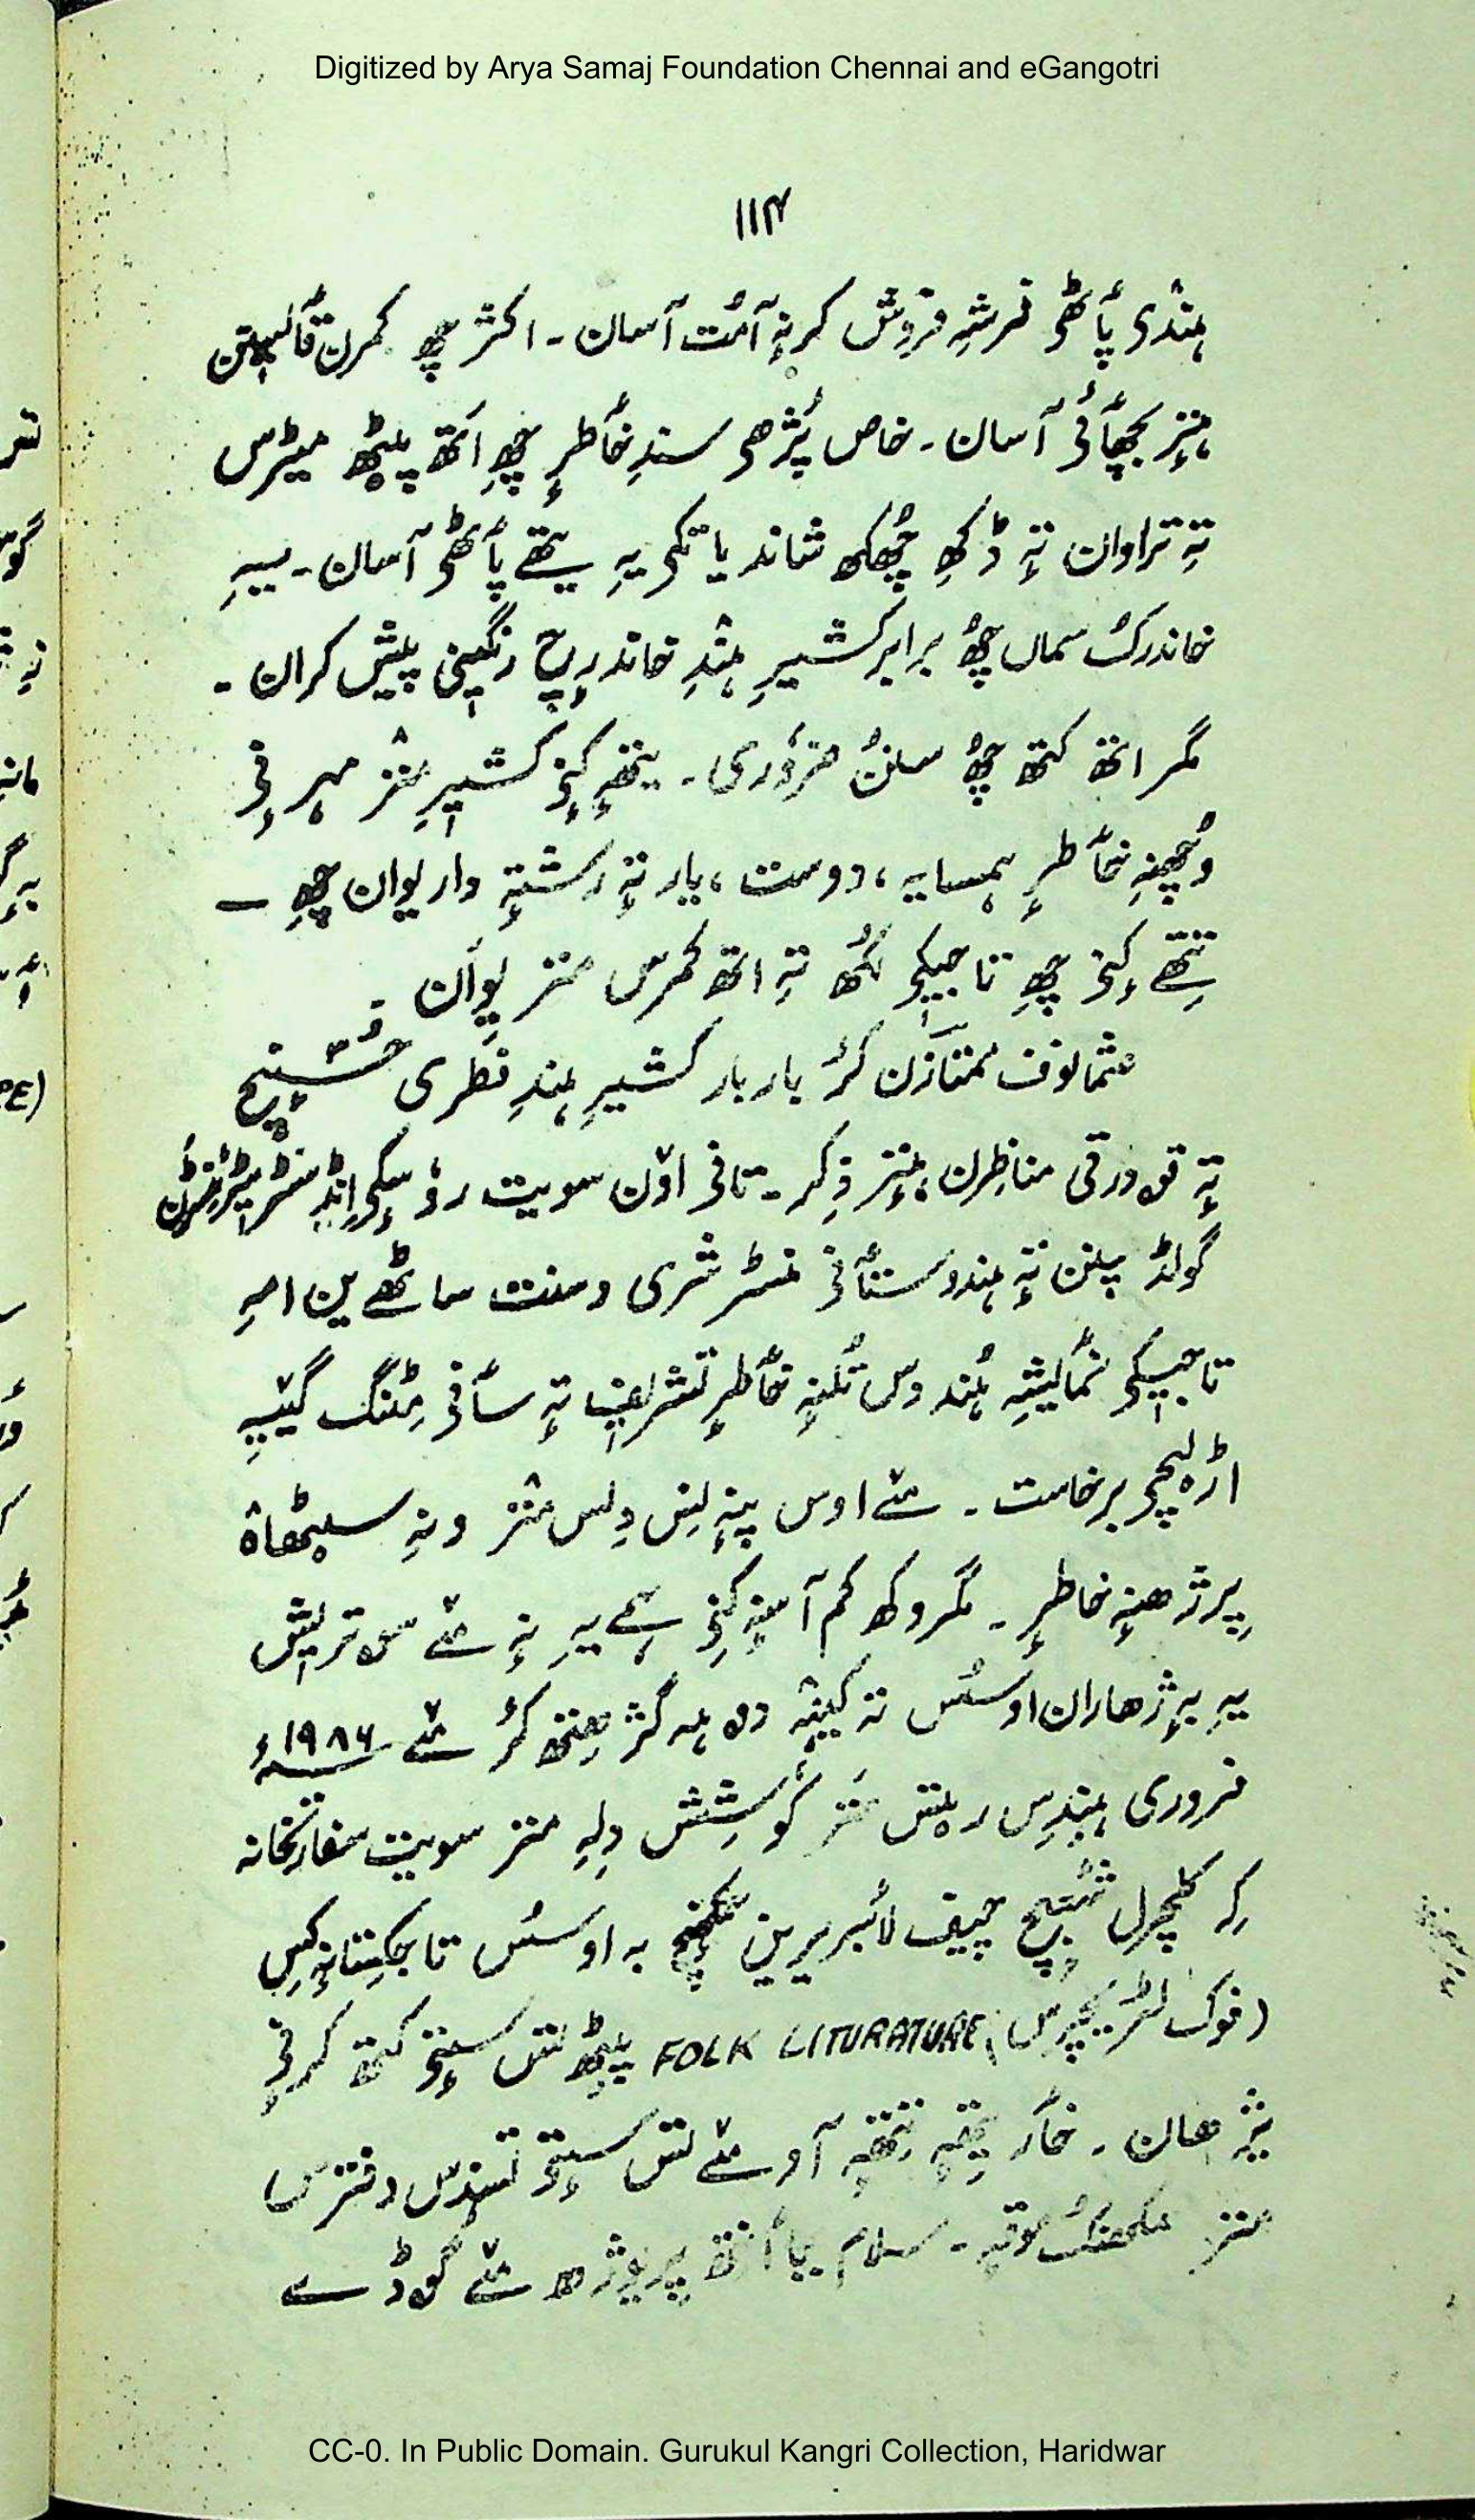 Digitized by Arya Samaj Foundation Chennai and eGangotri
۱۱۴
ہٕنْدی پٲٹھی فرشہِ فروش کرنہٕ آمُت آسان۔ اکثر چھِ کمرن قٲلیٖنن
ہٕنٛزٕ بچھٲئی آسان۔ خاص پٔژھی سندِ خٲطرٕ چھِ اَتھ پیٹھ میٹرس
تہِ تراوان تہٕ ڈکھِ چھُکھ شاند یا تکی یہِ یتھے پٲٹھی آسان۔ یہِ
خاندرُک سماں چھُ برابر کشیرِ ہٕنْدِ خاندرٕچ رنگیٖنی پیش کران۔
مگر اتھ کتھ چھُ سننُ ضروٗری۔ یتھہٕ کِنۍ کشیٖرِ منٛز مہرٕنۍ
وُچھنہٕ خٲطرٕ ہمسایہ، دوست، یار تہٕ رشتہٕ دار یوان چھِ ۔
تِتھے کِنۍ چھِ تاجیکی لُکھ تہِ اتھ کمرس منز یِوان۔
عثمانوف ممتازن کٔر بار بار کشیرِ ہندِ فطری حُسنٕچ
تہٕ قودرتی مناظرن ہٕنٛز ذِکر۔
گولڈ پلن تہٕ ہندوستٲنی منسٹر شری وسنت ساٹھے ین امہِ
تاجیٖکی نُمٲیشہِ ہُند وس تُلنہٕ خٲطرٕ تشریف تہٕ سٲنی مِٹنگ گیٚیہِ
اڑٕ لیچی برخاست۔ مےٚ اوس پننِس دِلس منٛز ونہِ سیٹھاہ
پرژھنہٕ خاطرٕ۔ مگر وکھ کم آسنہٕ کِنۍ
یہِ بہٕ ژھاران اوسُس تہ کینٛہہ دۄہ گژھِتھ کٔر مےٚ ۱۹۸۶ء
فروری ہنٛدِس رؠتس منٛز کوٗشِش دِلہِ منز سویت سفارتخانہ
کہِ کلچرل شعبٕچ چیف لائبریرین بہ اوسُس تاجکِستانہٕ کِس
(فوک لٹریچرس) FOLK LITURATURE پیٹھ تس سٟتۍ کتھ کرنۍ
یژھان۔ خٲر یتھہٕ تِتھہٕ آو مےٚ تس سٟتۍ تسندِس دفترس
منٛز سمکھنُک موقہٕ۔ سلام پرُژھ مےٚ گۄڈے
CC-0. In Public Domain. Gurukul Kangri Collection, Haridwar